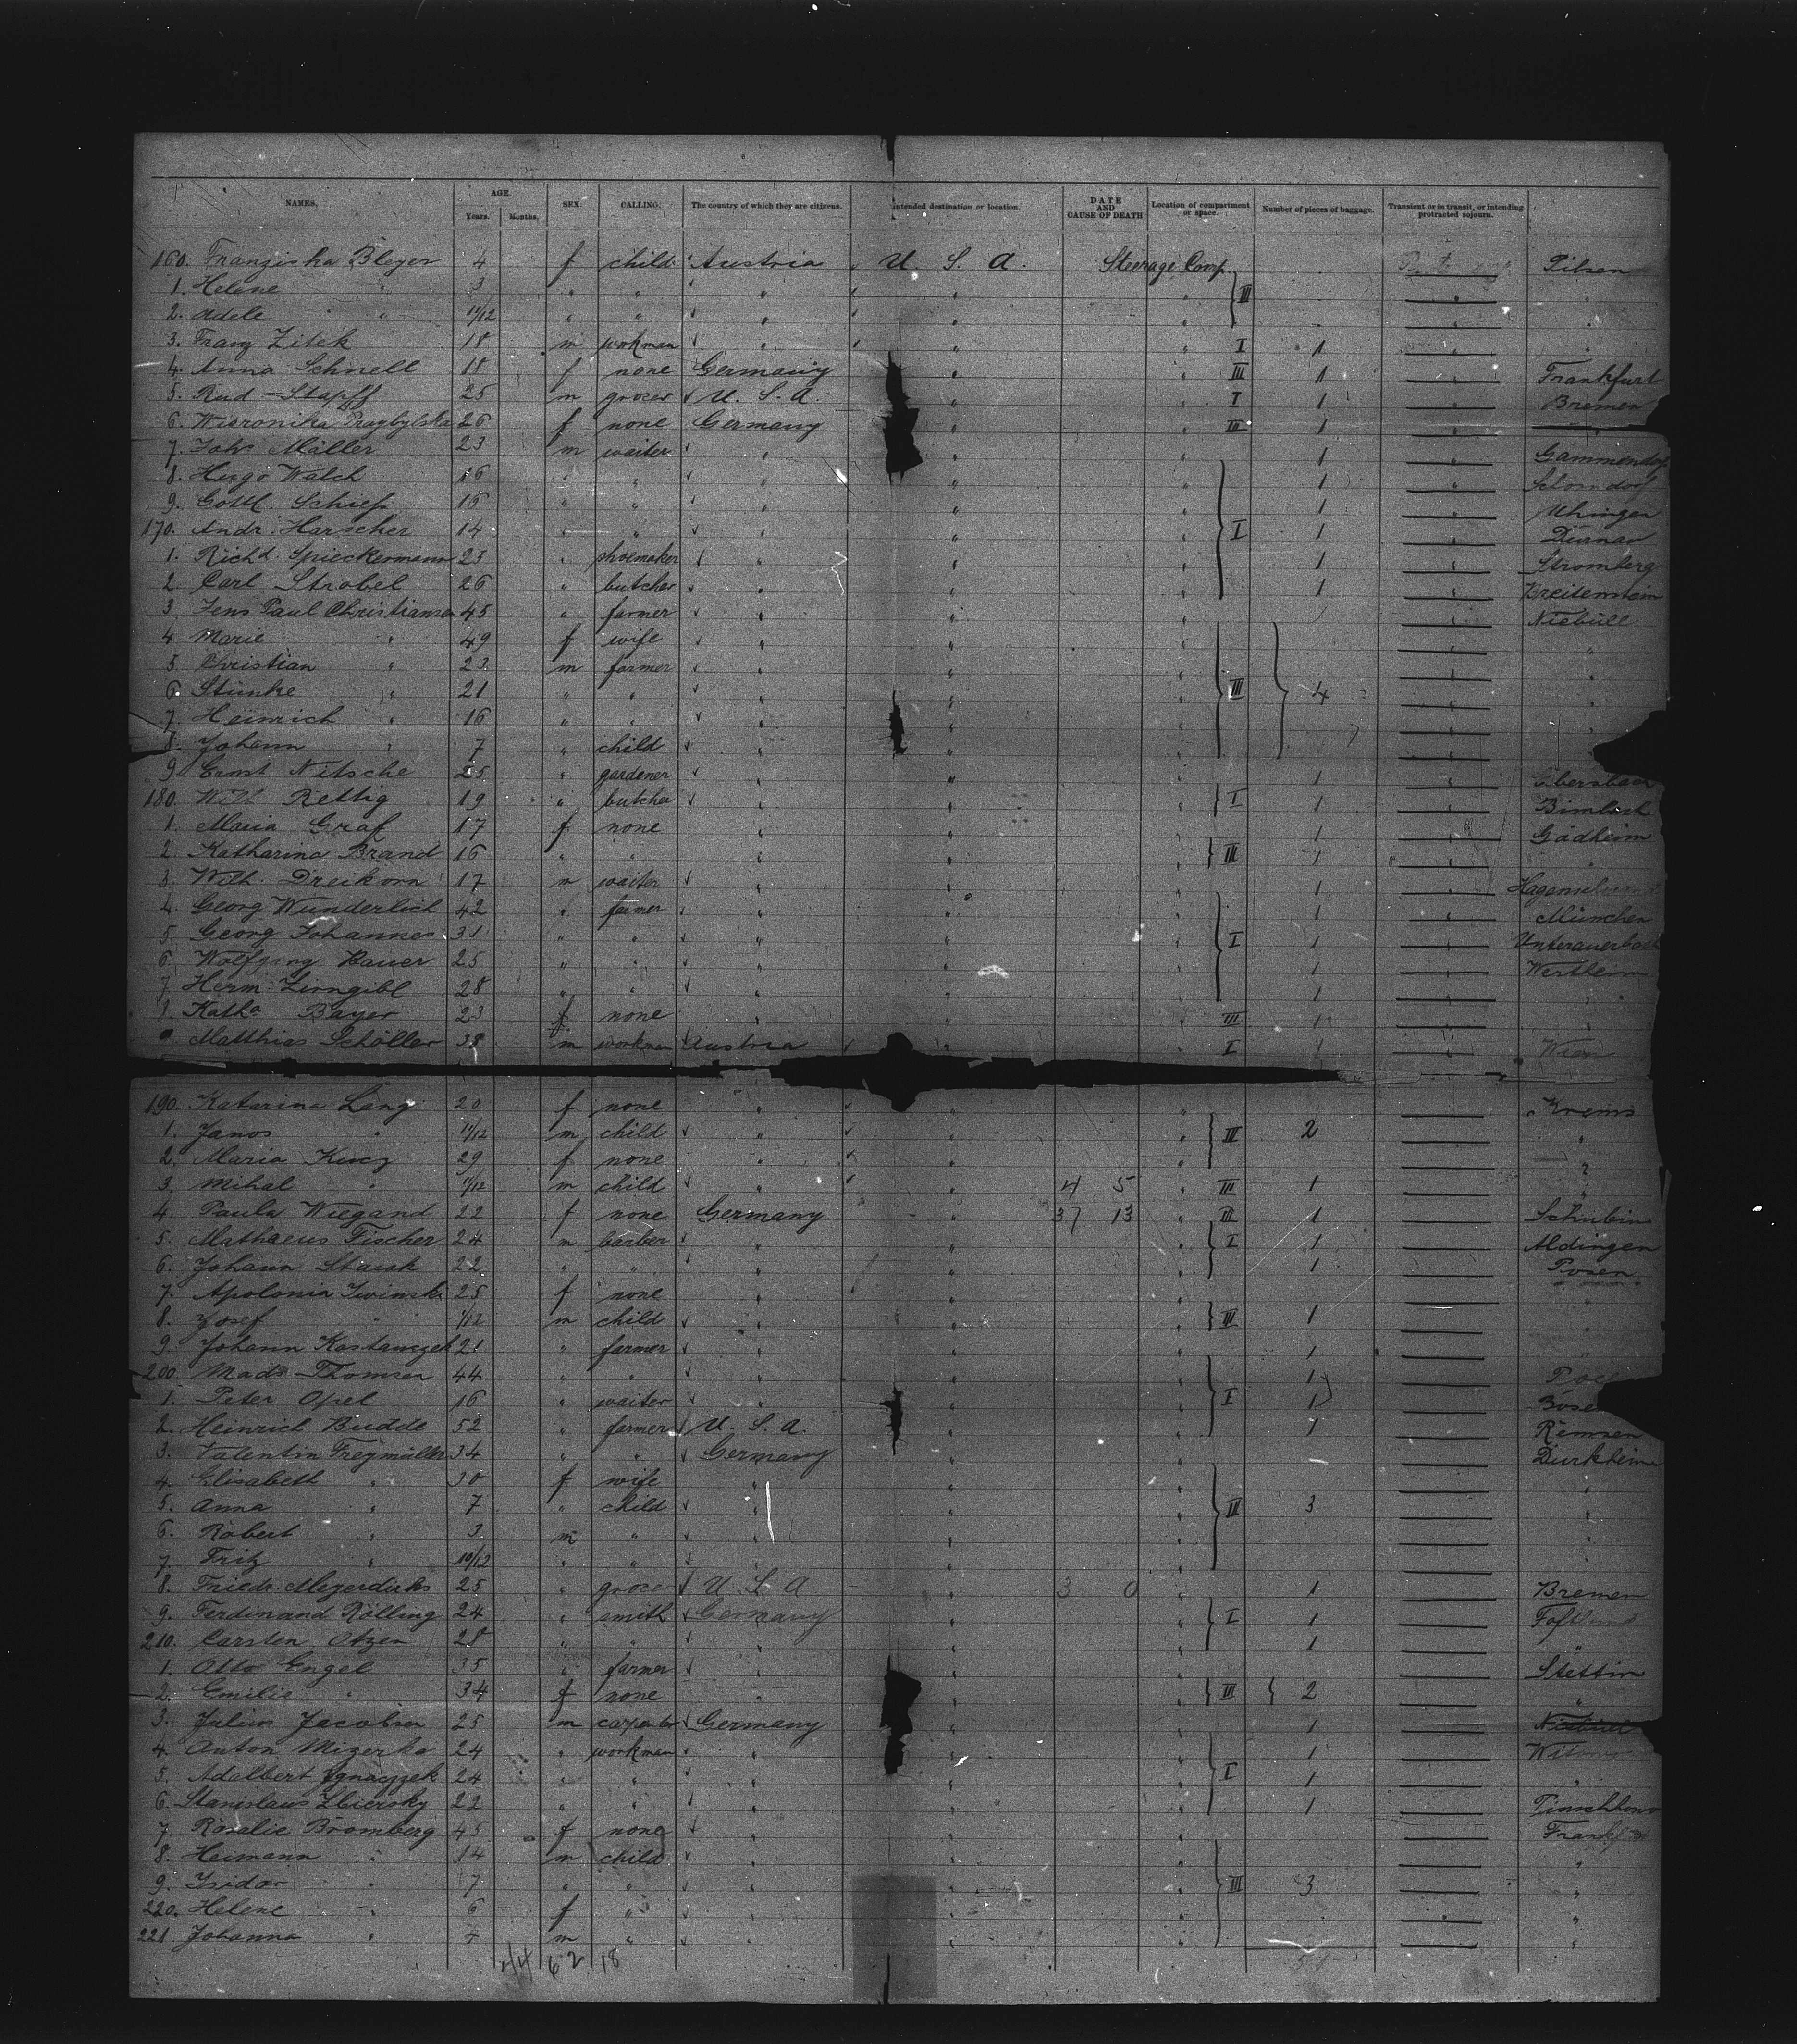 NAMES, AGE. Years. Months, SEX. CALLING. The country of which they are citizens. Intended destination or location. DATE AND CAUSE OF DEATH Location of compartment or space. Number of pieces of baggage. Transient or in transit, or intending protracted sojourn.
160. Franziska Bleyer 4 f child Austria U. S. A. Steerage Comp. Pilsen
1. Helene " 3 " " " " " III " "
2. Adele " 11/12 " " " " " "
3. Franz Zitek 18 m workman " " " I 1 " "
4. Anna Schnell 18 f none Germany " " III 1 " Frankfurt
5. Rud Stapff 25 m grocer U. S. A. " " I 1 " Bremen
6. Wieronika 26 f none Germany " " III 1 "
7. Johs Möller 23 m waiter " " " 1 " Gammendorf
8. Hugo Walch 16 " " " " 1 " Schorndorf
9. Gottl. Schief 15 " " " " 1 " Uhingen
170. Andr. Harscher 14 " " " " I 1 " Dürnau
1. Richd. Spieckermann 23 " shoemaker " " 1 " Stromberg
2. Carl Strobel 26 " butcher " " 1 " Breitenstein
3 Jens Paul Christiansen 45 " farmer " " " Niebüll
4 Marie " 49 f wife " " " "
5 Christian " 23 m farmer " " " "
6. Stünke " 21 " " " " III 4 " "
7. Heinrich " 16 " " " " " "
8. Johann " 7 " child " " "
9. Ernst Nitsche 25 " gardener " " 1 "
180. Wilh Rettig 19 " butcher " " I 1 " Bimbach
1. Maria Graf 17 f none " " 1 " Gädheim
2. Katharina Brand 16 " " " " III 1 " "
3. Wilh. Dreikorn 17 m waiter " " 1 "
4. Georg Wunderlich 42 " farmer " " 1 " München
5. Georg Johannes 31 " " " " I 1 " Unterauerbach
6. Wolfgang Bauer 25 " " " " 1 " Wertheim
7. Herm. Zirngibl 28 " " " " 1 "
8 Katha Bayer 23 f none " " III 1 " "
9 Matthias Schöller 38 m workman Austria " I 1 " Wien
190. Katarina Lang 20 f none " " " Krems
1. Janos " 11/12 m child " " III 2 "
2. Maria Kucz 29 f none " " "
3. Mihal " 11/12 m child " " 4 5 " III 1 "
4 Paula Wiegand 22 f none Germany " 37 13 " III 1 Schubin
5. Mathaeus Fischer 24 m barber " " " I 1 Aldingen
6. Johann 22 " " " " " 1 Posen
7. Apolonia 25 f none " " " "
8. Josef " 1/12 m child " " " III 1
9. Johann 21 " farmer " " " 1 "
200. Mads Thomsen 44 " " " " " 1
1. Peter Opel 16 " waiter " " " I 1
2. Heinrich Budde 52 " farmer U. S. A. " " 1 Remsen
3. Valentin Freymüller 34 " " Germany " " Dürkheim
4. Elisabeth " 30 f wife " " " "
5. Anna " 7 " child " " " III 3 "
6. Robert " 3 m " " " " "
7. Fritz " 10/12 " " " " " "
8. Friedr. Meyerdierks 25 " grocer U. S. A " 3 0 " 1 Bremen
9. Ferdinand Rölling 24 " smith Germany " " I 1 Toftlund
210. Carsten Otzen 28 " " " " " 1 "
1. Otto Engel 35 " farmer " " " Stettin
2. Emilie " 34 f none " " " III 2 "
3. Julius Jacobsen 25 m carpenter Germany " " 1 Niebüll
4. Anton Mizerka 24 " workman " " " 1
5. Adalbert Ignaczzek 24 " " " " " I 1 "
6. Stanislaus Zbiersky 22 " " " " " 1
7. Rosalie Bromberg 45 f none " " " Frankfurt
8. Heimann " 14 m child " " " "
9. Isidor " 7 " " " " " III 3 "
220. Helene " 6 f " " " " "
221. Johanna " 4 m " " " " "
44 62 18 51